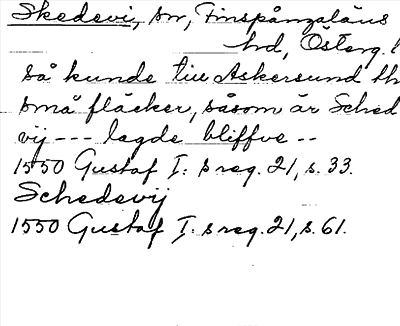 Skedevi, sn, Finspångaläns
hd, Österg. l
så kunde till Askersund th
små fläcker, såsom är Sched
vij --- lagde bliffve --
1550 Gustaf I: s reg. 21, s. 33.
Schedevij
1550 Gustaf I: s reg. 21, s. 61.